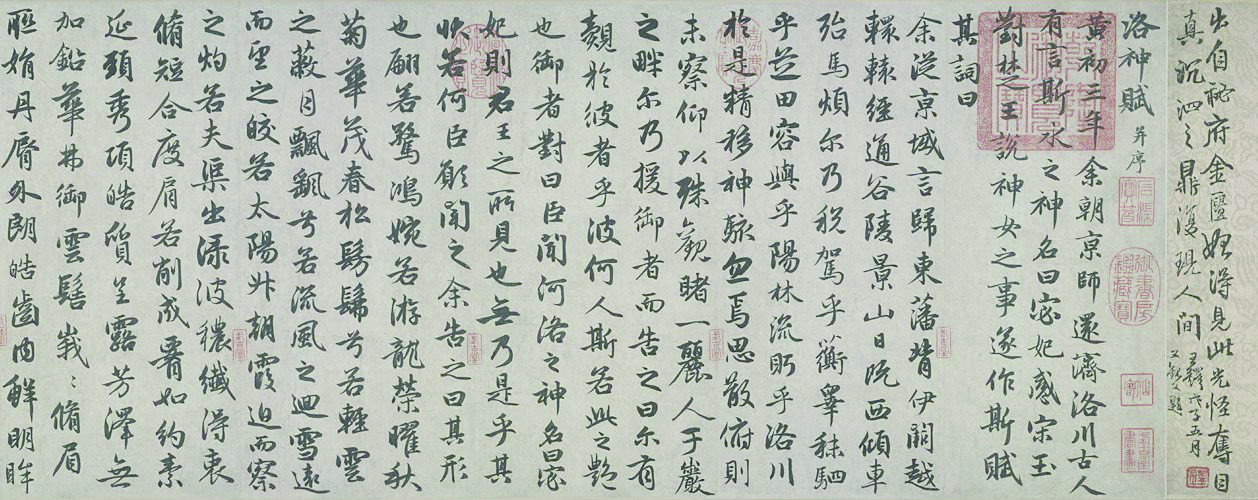 出自祕府金匱始得見此光怪奪目
真沉泗之鼎復現人间
王鐸
五月
又題
洛神賦 并序
黃初三年余朝京師還濟洛川古人
有言斯水之神名曰宓妃感宋玉
對楚王說神女之事遂作斯賦
其詞曰
余從京域言歸東藩背伊闕越
轘轅經通谷陵景山日既西傾車
殆馬煩尔乃稅駕乎蘅皋秣駟
乎芝田容與乎陽林流眄乎洛川
於是精移神駭忽焉思散俯則
未察仰以殊觀睹一麗人于巖
之畔尔乃援御者而告之曰尔有
覿於彼者乎彼何人斯若此之艷
也御者對曰臣聞河洛之神名曰宓
妃則君王之所見也無乃是乎其
狀若何臣願聞之余告之曰其形
也翩若驚鴻婉若游龍榮曜秋
菊華茂春松髣髴兮若輕雲
之蔽月飄颻兮若流風之迴雪遠
而望之皎若太陽升朝霞迫而察
之灼若夫渠出淥波穠纖得衷
脩短合度肩若削成腰如約素
延頸秀項皓質呈露芳澤無
加鉛華弗御雲髻峩〻脩眉
聯娟丹脣外朗皓齒内鮮明眸
御書房鑑藏寶